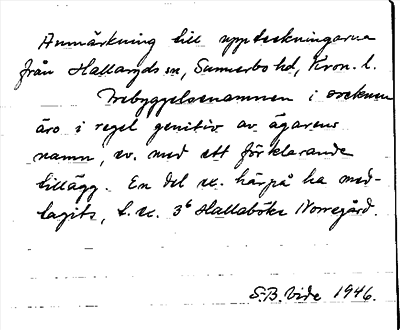 Anmärkning till uppteckningarna
från Hallaryds sn, Sunnerbo hd, Kron. l.
Inbyggelsenamnen i socknen
äro i regel genitiv av ägarens
namn, ev. med ett förklarande
tillägg. En del ex. härpå ha med-
tagits, t. ex. 3⁶ Hallaböke Norregård.
S.B. Vide 1946.